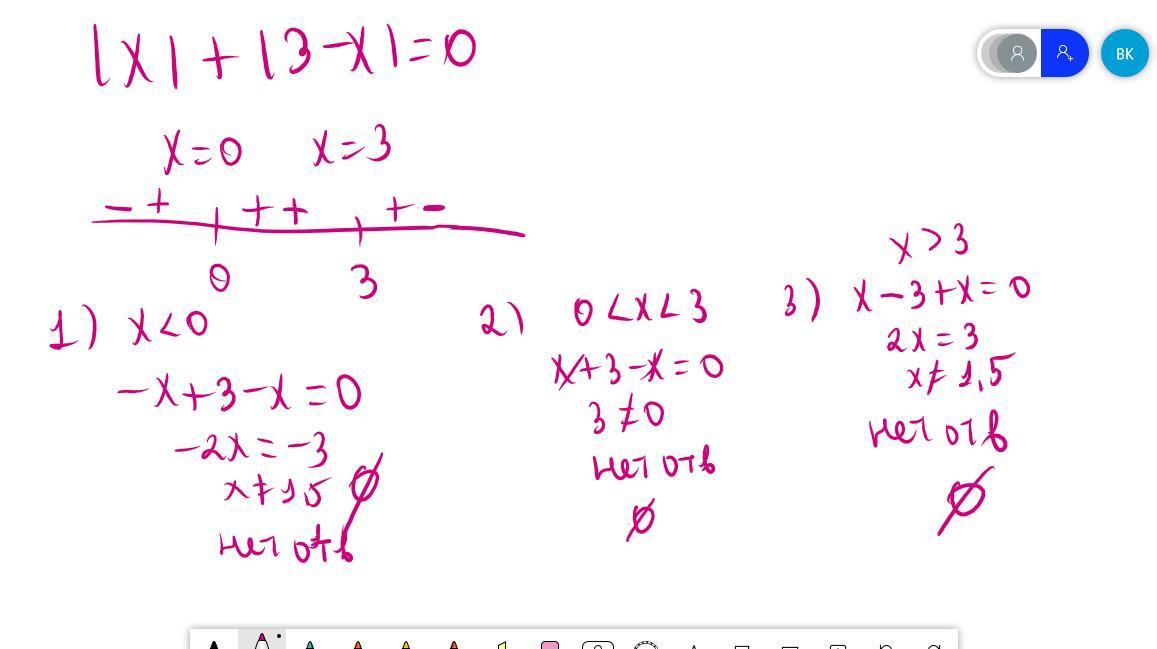 |x| + |3-x| = 0
x=0 x=3
- + + + + -
0 3
1) x<0
-x+3-x=0
-2x=-3
x≠1,5 ∅
нет отв
2) 0<x<3
x+3-x=0
3≠0
нет отв
∅
x>3
3) x-3+x=0
2x=3
x≠1,5
нет отв
∅
BK